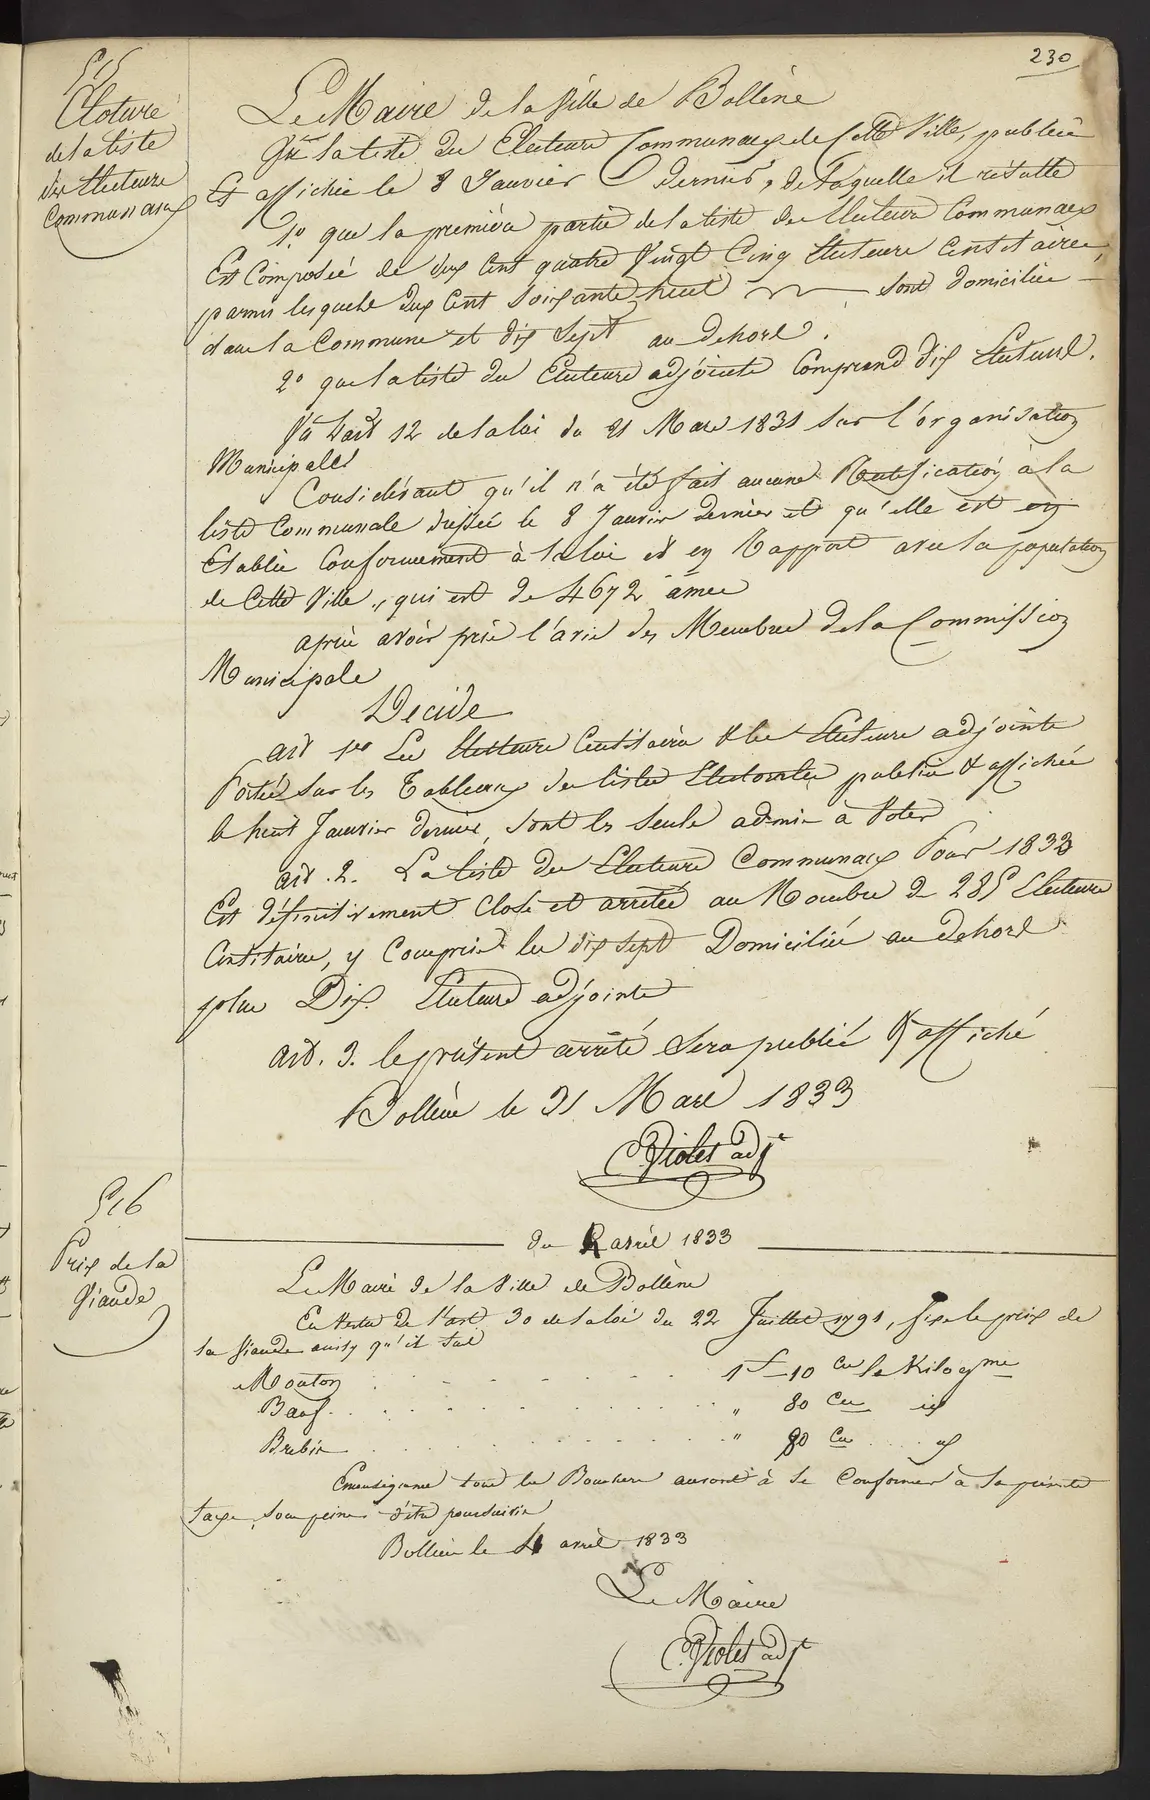 230
515
Cloture
de la liste
des Electeurs
Communaux
Le Maire de la Ville de Bollène
Vu la liste des Electeurs Communaux de cette Ville, publiée
Et affichée le 8 Janvier dernier, de laquelle il résulte
1.º que la première partie de la liste des Electeurs Communaux
Est Composée de deux cent quatre Vingt Cinq Electeurs Censitaires,
parmi lesquels deux Cent soixante huit sont domiciliés
dans la Commune et dix sept au dehors.
2.º que la liste des Electeurs adjoints Comprend dix Electeurs.
Vu l'art 12 de la loi du 21 Mars 1831 sur l'organisation
Municipale
Considérant qu'il n'a été fait aucune Rectification à la
liste Communale dressée le 8 Janvier dernier et qu'elle est
Etablie Conformement à la loi et en Rapport avec la population
de Cette Ville, qui est de 4672 âmes
après avoir pris l'avis des Membres de la Commission
Municipale
Décide
art 1er Les Electeurs Censitaires & les Electeurs adjoints
Portés sur les Tableaux des listes Electorales publiés & affichés
le huit Janvier dernier, sont les seuls admis à Voter
art. 2. La liste des Electeurs Communaux Pour 1833
Est définitivement Close et arretée au Nombre de 285 Electeurs
Censitaires, y Compris les dix sept Domiciliés au dehors
plus Dix Electeurs adjoints
art. 3. le présent arrêté sera publié & affiché
Bollène le 31 Mars 1833
C. Violès adjt
516
Prix de la
Viande
du 2 avril 1833
Le Maire de la Ville de Bollène
En Vertu de l'art 30 de la loi du 22 Juillet 1791, fixe le prix de
la Viande ainsy qu'il suit
Mouton 1 f 10 ces le Kilogme
Bœuf " 80 ces id
Brebis " 80 ces id
Enconséquence tous les Bouchers auront à se Conformer à la présente
taxe, sous peine d'être poursuivis
Bollène le 4 avril 1833
Le Maire
C. Violès adjt